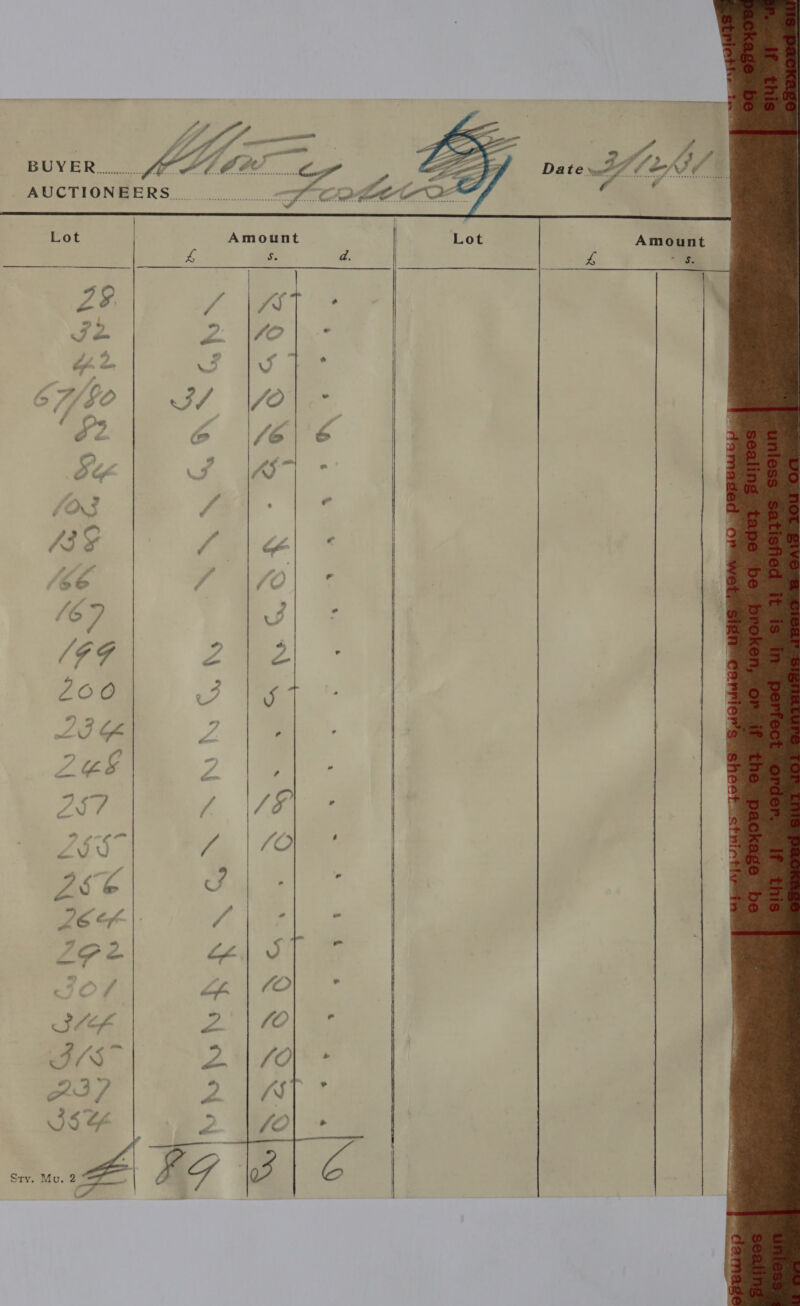 BUYER
Date
AUCTIONEERS
Lot Amount Lot Amount
£ s. d. £ s.
28 1 15 "
32 2 10 "
42 3 5 "
67/80 31 10 "
82 6 16 6
84 3 15 "
103 1 " "
138 1 4 "
166 1 10 "
167 3 "
199 2 2 "
200 3 5 "
234 2 " "
248 2 " "
257 1 18 "
255 1 10 "
256 3 " "
264 1 " "
292 4 5 "
301 4 10 "
314 2 10 "
315 2 10 "
237 2 15 "
354 2 10 "
Sty. Mu. 2 £ 89 3 6
Do not give a clear signature for this package
unless satisfied it is in perfect order. If this
sealing tape be broken, or if the package be
damaged or wet, sign carrier's sheet strictly in